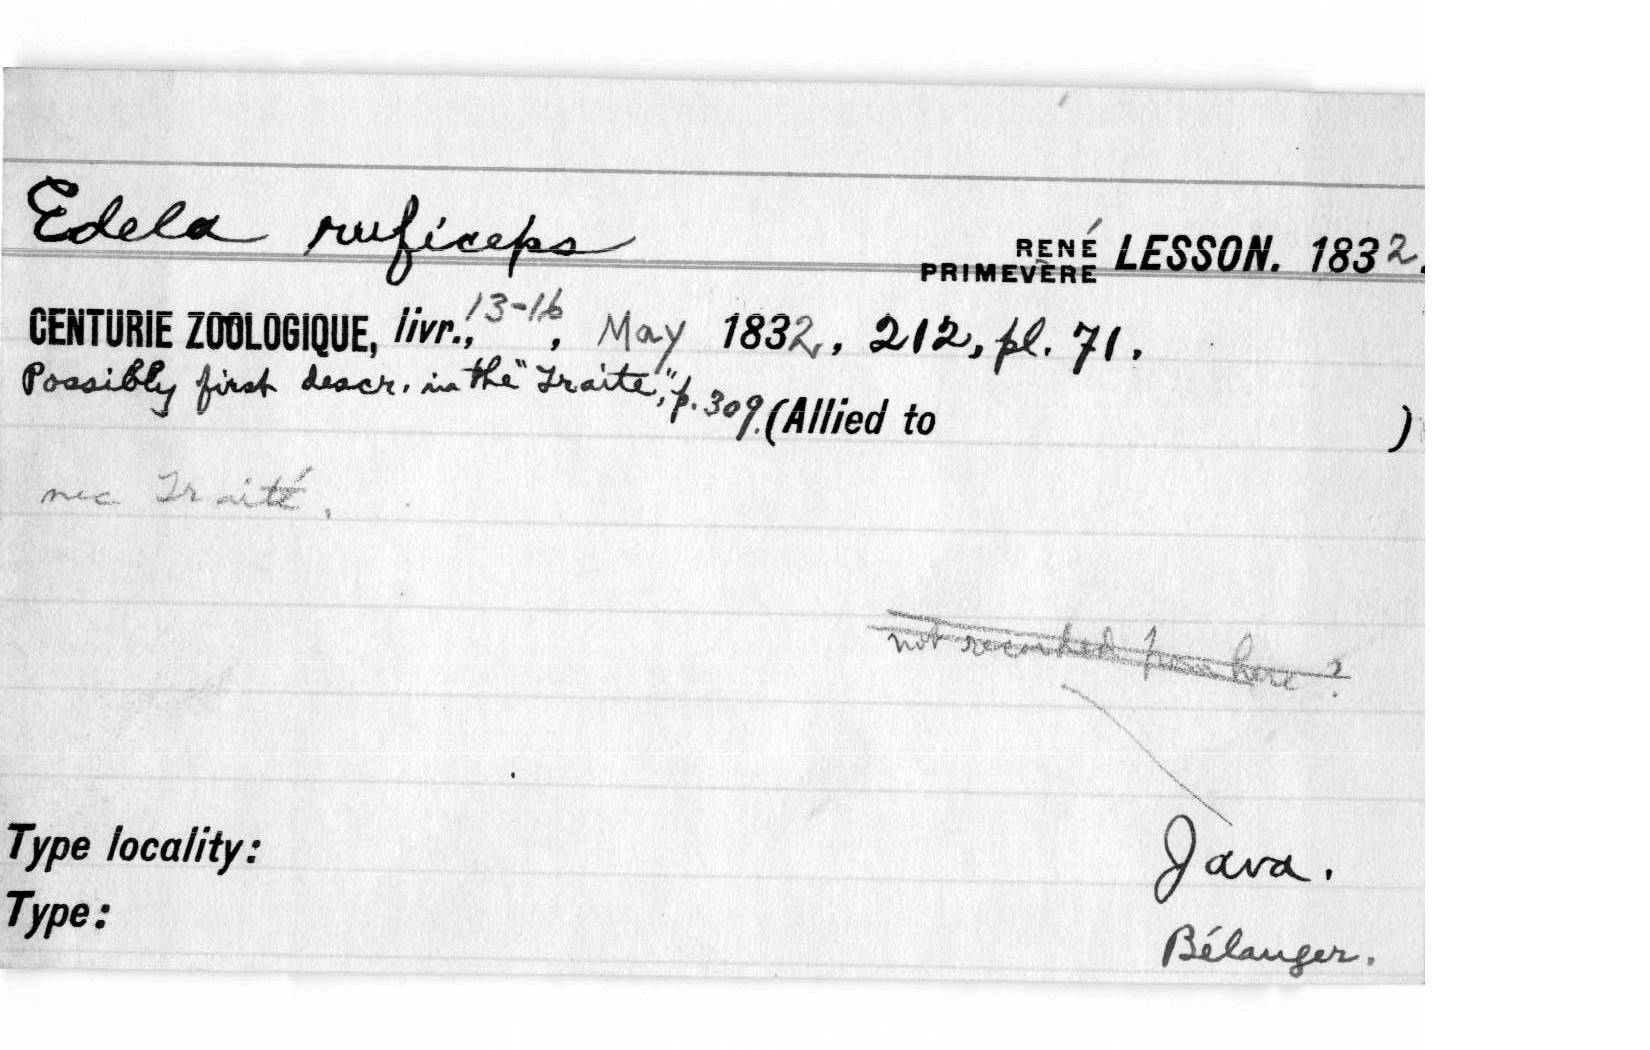 Edela ruficeps RENÉ PRIMEVÈRE LESSON. 1832.
CENTURIE ZOOLOGIQUE, livr., 13-16, May 1832, 212, pl. 71.
Possibly first descr. in the "Traite," p. 309. (Allied to )
nec Traité.
not recorded from here?
Type locality: Java.
Type: Bélanger.